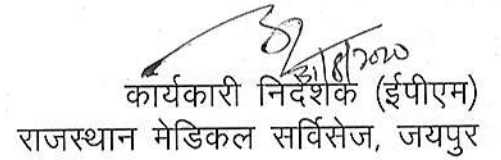 31/8/2020
कार्यकारी निदेशक (ईपीएम)
राजस्थान मेडिकल सर्विसेज, जयपुर